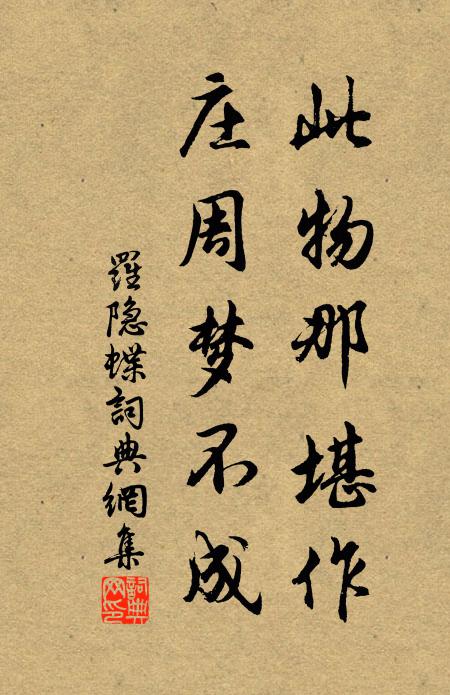 此物那堪作
庄周梦不成
羅隐蝶詞典網集
詞典网印